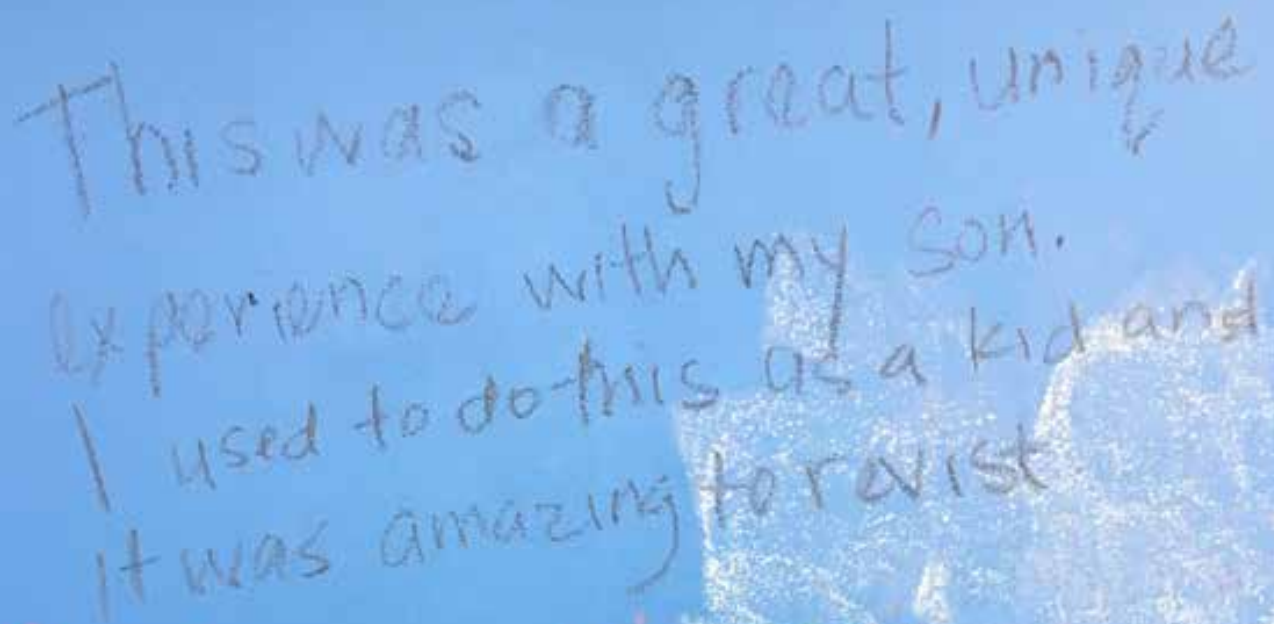 This was a great, unique
experience with my son.
I used to do this as a kid and
it was amazing to revist